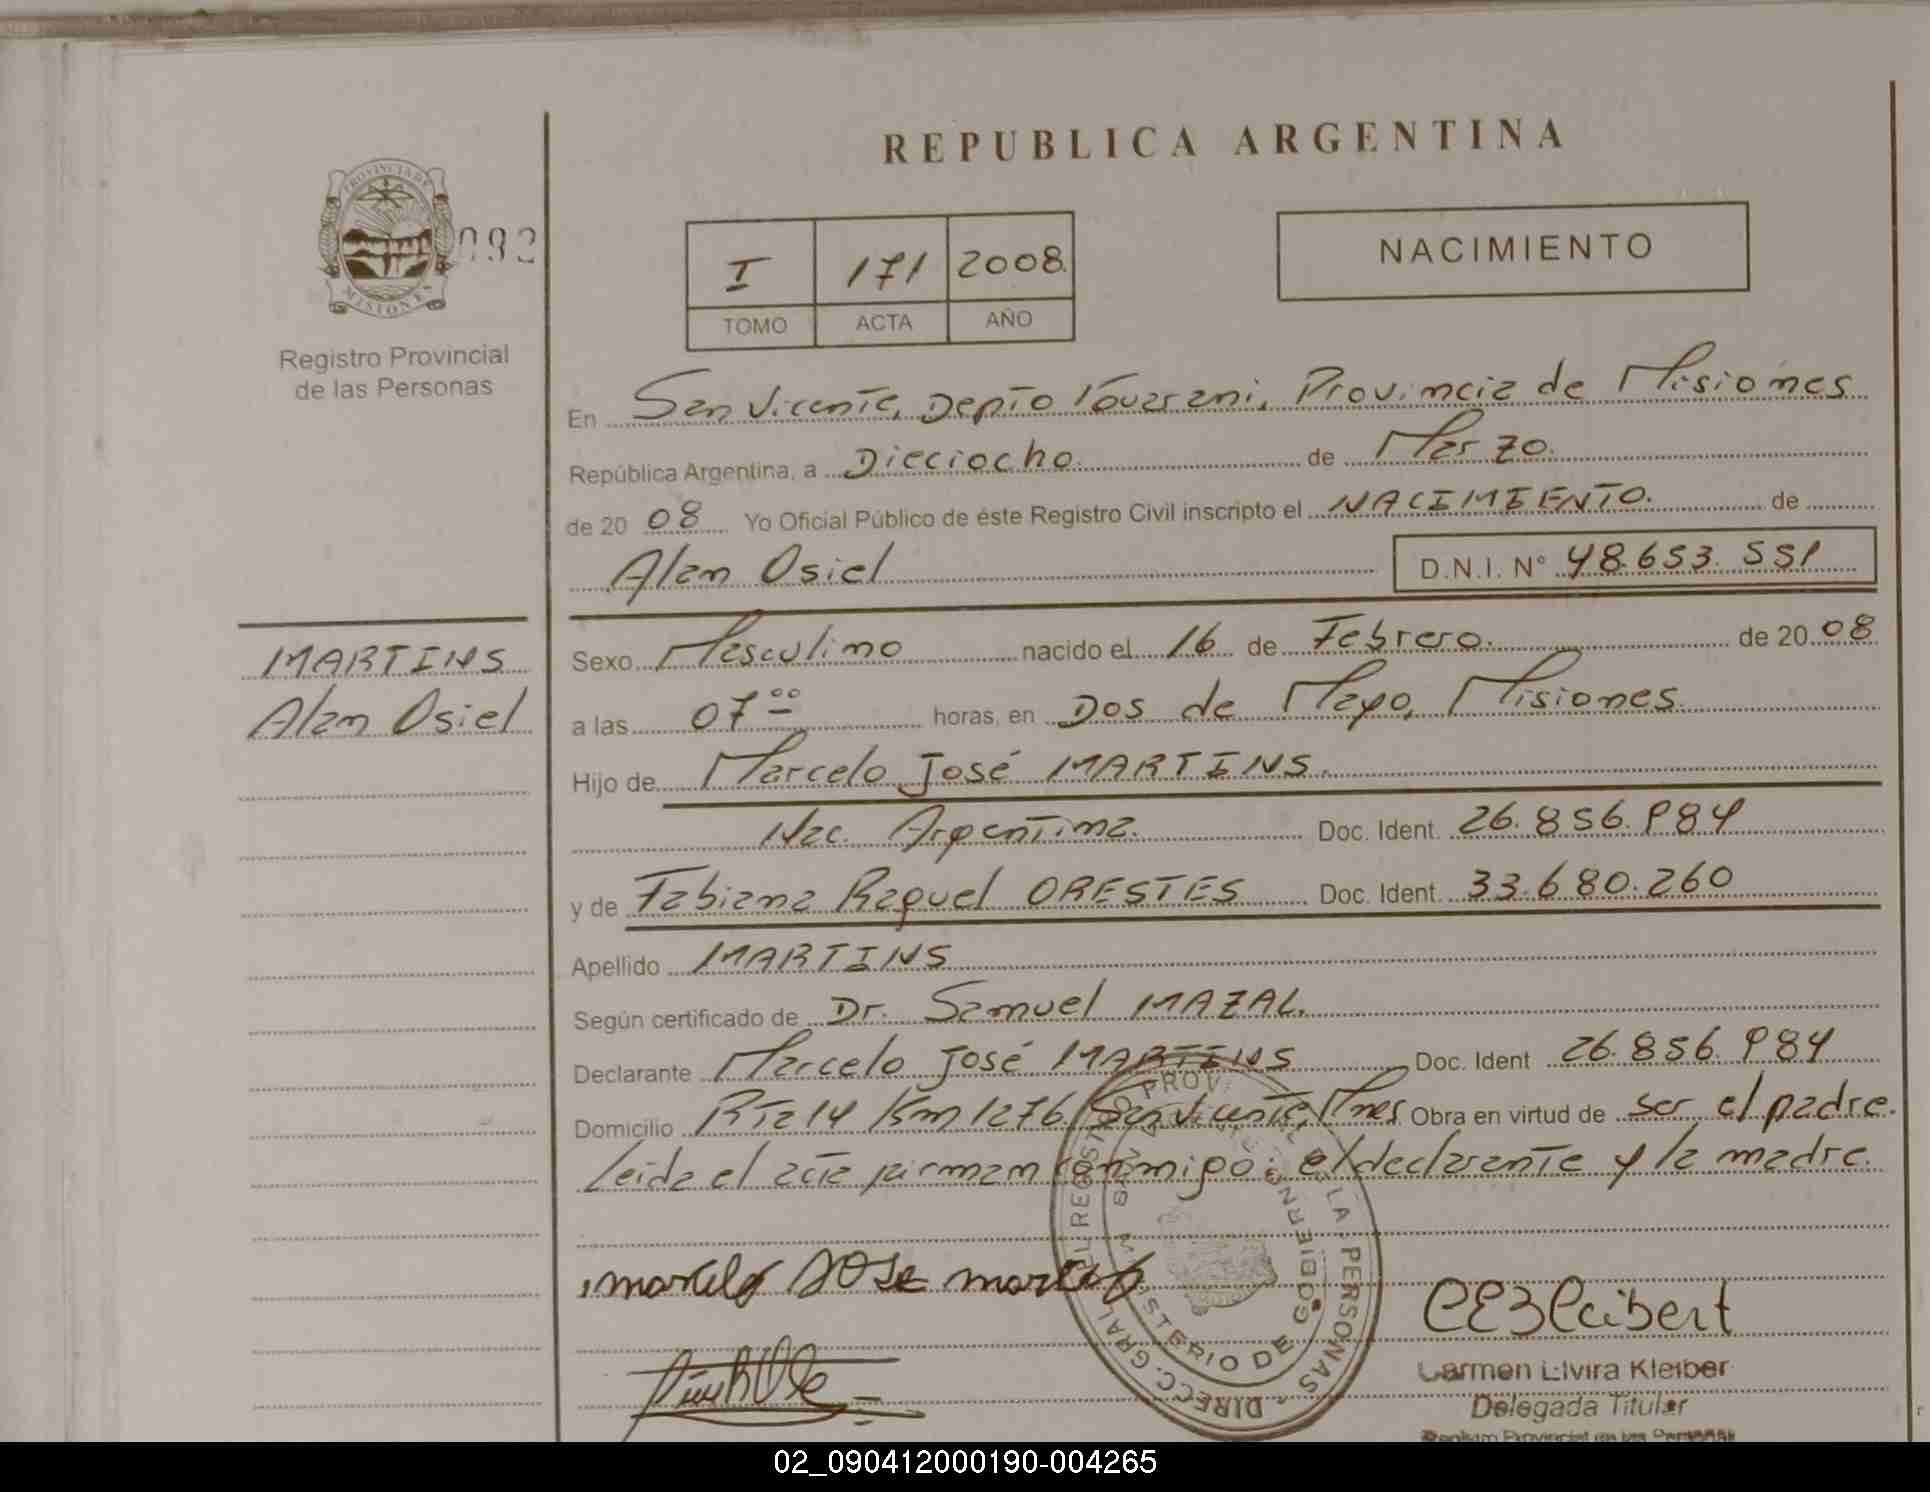 REPUBLICA ARGENTINA
PROVINCIA DE
MISIONES
092
Registro Provincial
de las Personas
I 171 2008.
TOMO ACTA AÑO
NACIMIENTO
En San Vicente, Depto Guarani, Provincia de Misiones
República Argentina, a Dieciocho. de Marzo.
de 20 08 Yo Oficial Público de éste Registro Civil inscripto el NACIMIENTO. de
Alan Osiel D.N.I. N° 48.653.551
MARTINS
Alan Osiel
Sexo Masculino nacido el 16 de Febrero. de 20 08
a las 07 00 horas, en Dos de Mayo, Misiones.
Hijo de Marcelo José MARTINS.
Nac. Argentina. Doc. Ident. 26.856.984
y de Fabiana Raquel ORESTES Doc. Ident. 33.680.260
Apellido MARTINS
Según certificado de Dr. Samuel MAZAL.
Declarante Marcelo José MARTINS Doc. Ident 26.856.984
Domicilio Rta 14 Km 1276 San Vicente, Mnes Obra en virtud de ser el padre.
Leida el acta firman conmigo: el declarante y la madre.
marcelo JOSe
DIRECC. GRAL. DEL REGISTRO PROV. DE LA PERSONAS
MINISTERIO DE GOBIERNO
Carmen Elvira Kleiber
Delegada Titular
Registro Provincial de las Personas
02_090412000190-004265